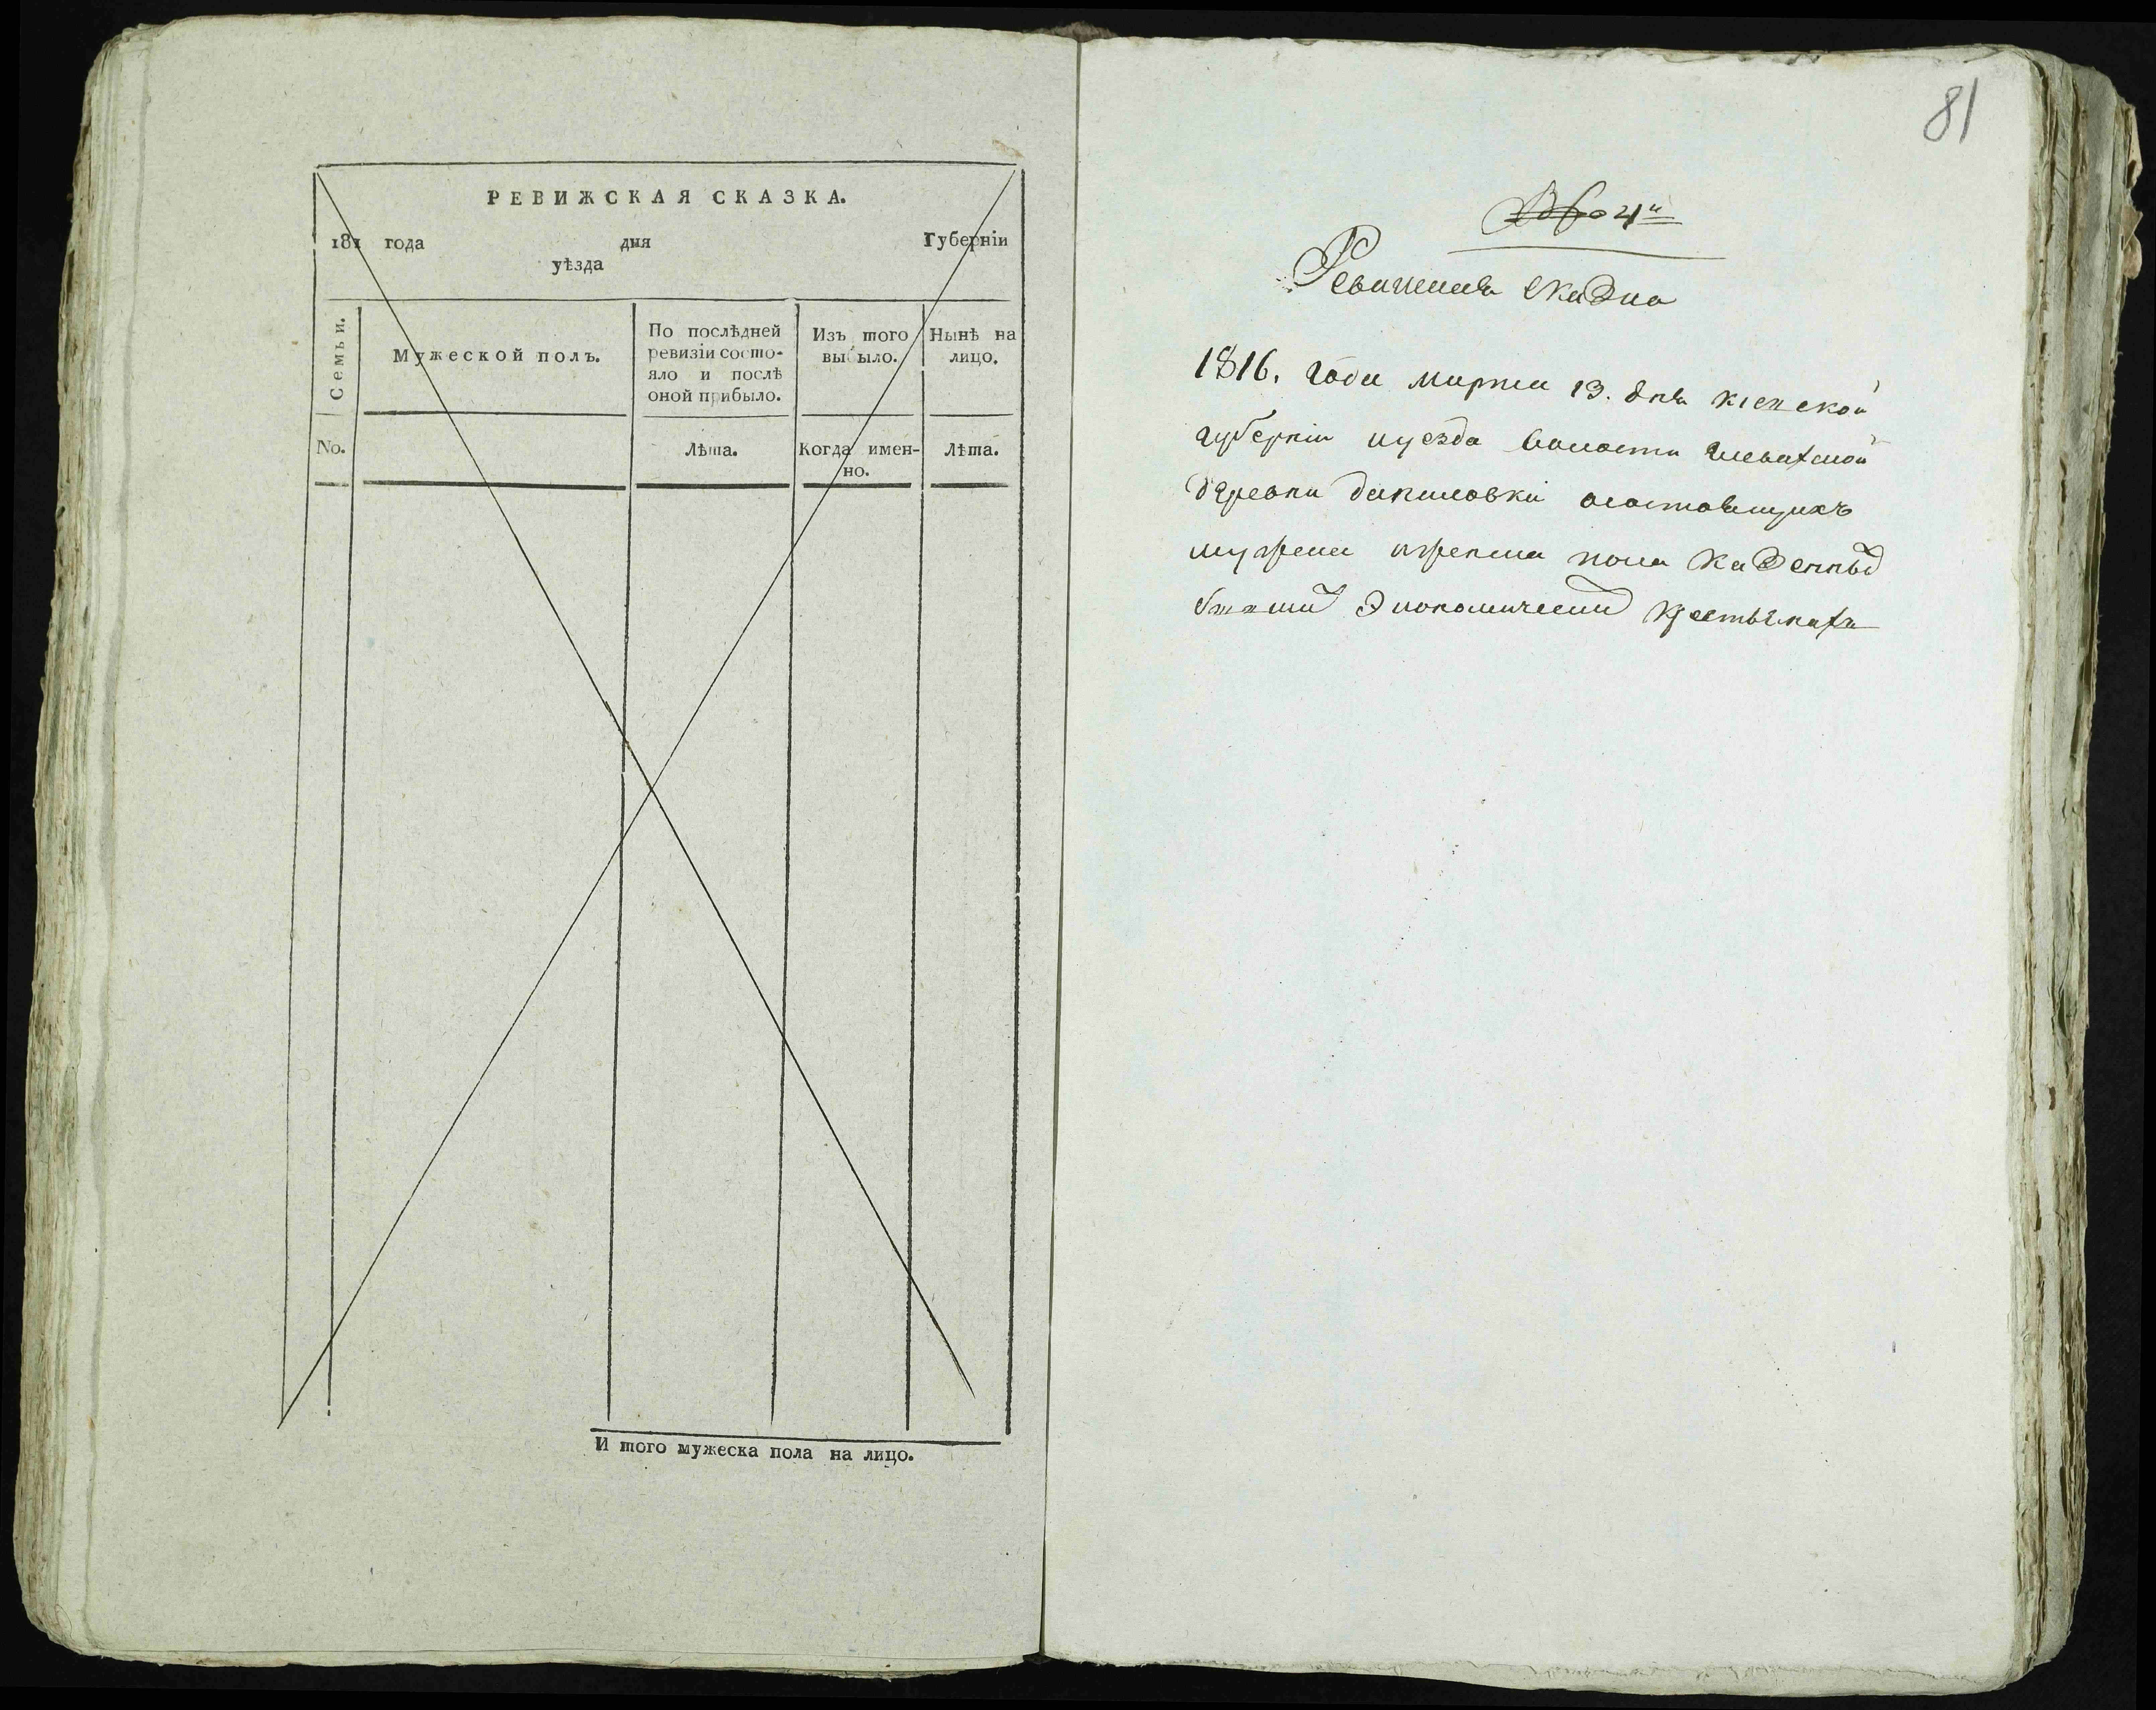 РЕВИЖСКАЯ СКАЗКА.
181 года дня Губерніи
уѣзда
Семьи.
Мужеской полъ.
По послѣдней
ревизіи состо-
яло и послѣ
оной прибыло.
Изъ того
выбыло.
Нынѣ на
лицо.
No.
Лѣта.
Когда имен-
но.
Лѣта.
И того мужеска пола на лицо.
81
Ревижская сказка
1816. года марта 13. дня Кіевской
губерніи и уезда волости
деревни Даниловки состоящихъ
мужеска и женска пола казенныхъ
бывшихъ экономическихъ крестьянахъ